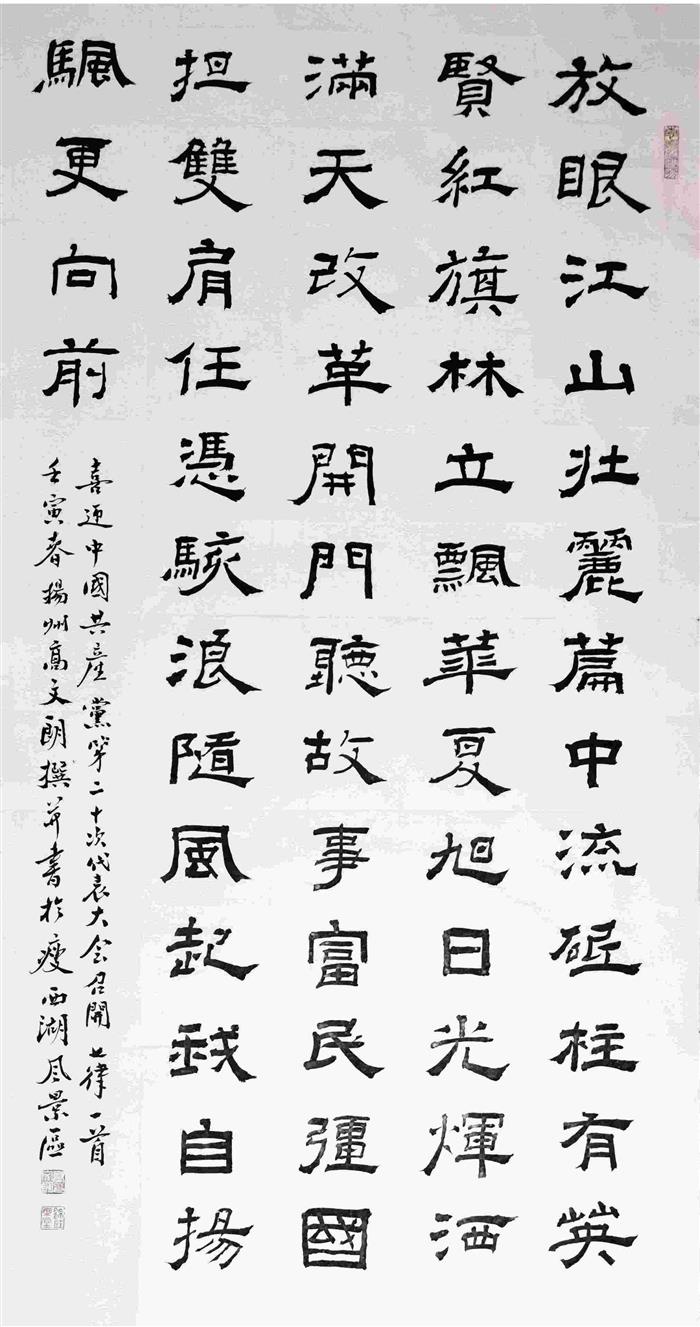 放眼江山壯麗篇中流砥柱有英
賢紅旗林立飄華夏旭日光輝洒
滿天改革開門聽故事富民彊國
担雙肩任憑駭浪隨風起我自揚
颿更向前
喜迎中國共産黨第二十次代表大会召開七律一首
壬寅春揚州高文朗撰并書於瘦西湖風景區